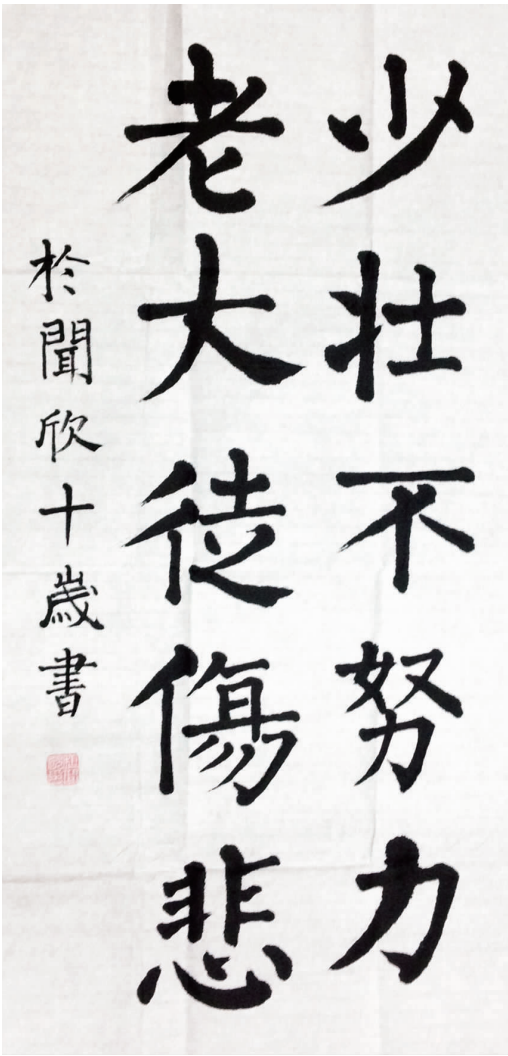 少壯不努力
老大徒傷悲
於聞欣十歲書